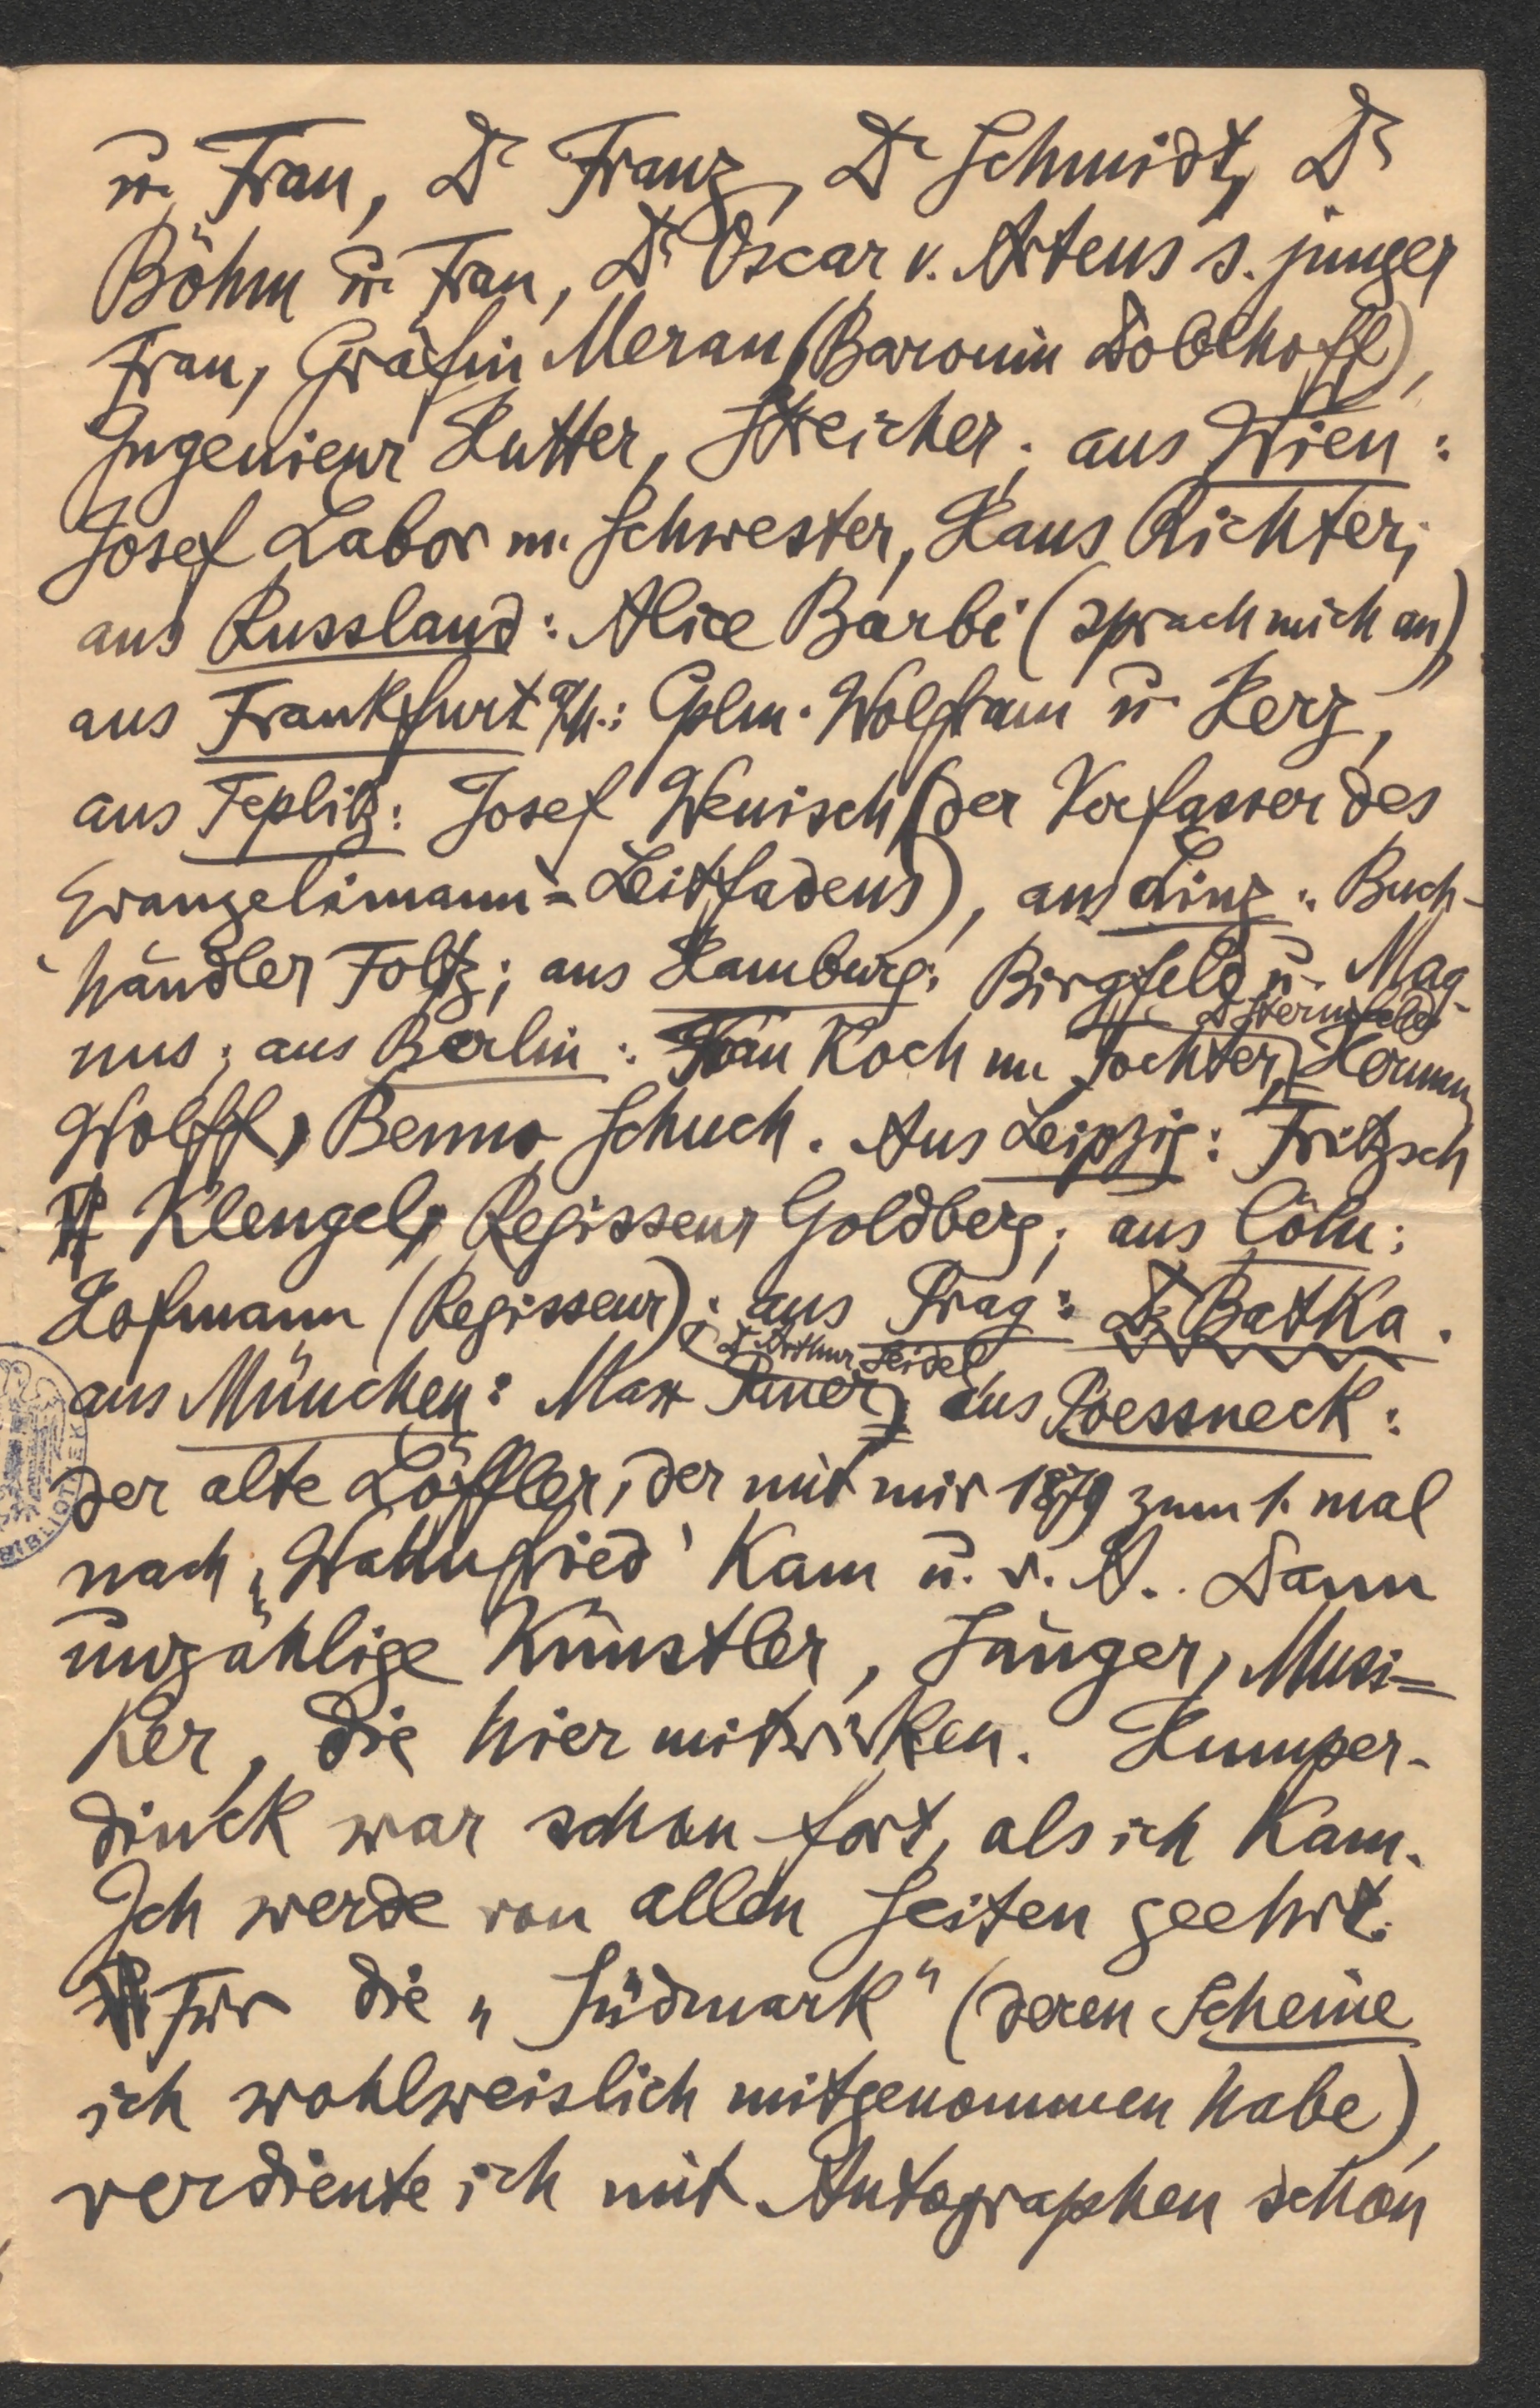 u. Frau, Dr Franz, Dr Schmidt, Dr
Böhm u. Frau, Dr Oscar v. Artens s. junger
Frau, Gräfin Meran, (Baronin Doblhoff),
Ingenieur Hutter, Streicher; aus Wien:
Josef Labor m. Schwester, Hans Richter;
aus Russland: Alice Barbi (sprach mich an),
aus Frankfurt a/M.: Cplm. Wolfram u. Herz,
aus Teplitz: Josef Wenisch (der Verfasser des
Evangelimann-Leitfadens), aus Linz: Buch-
händler Foltz; aus Hamburg: Birgfeld u. Mag-
Dr Sternfeld
nus; aus Berlin: Frau Koch m. Tochter, Hermann
Wolff, Benno Schuch. Aus Leipzig: Fritzsch
Klengel, Regisseur Goldberg; aus Cöln:
Hofmann (Regisseur); aus Prag: Dr Batka.
Dr Arthur Seidel
aus München: Max Pauer; aus Poessneck:
der alte Löffler, der mit mir 1879 zum 1. mal
nach „Wahnfried' kam u. v. A.. Dann
unzählige Künstler, Sänger, Musi=
ker, die hier mitwirken. Humper-
dinck war schon fort, als ich kam.
Ich werde von allen Seiten geehrt.
Für die „Südmark" (deren Scheine
ich wohlweislich mitgenommen habe),
verdiente ich mit Autographen schon
BIBLIOTHEK